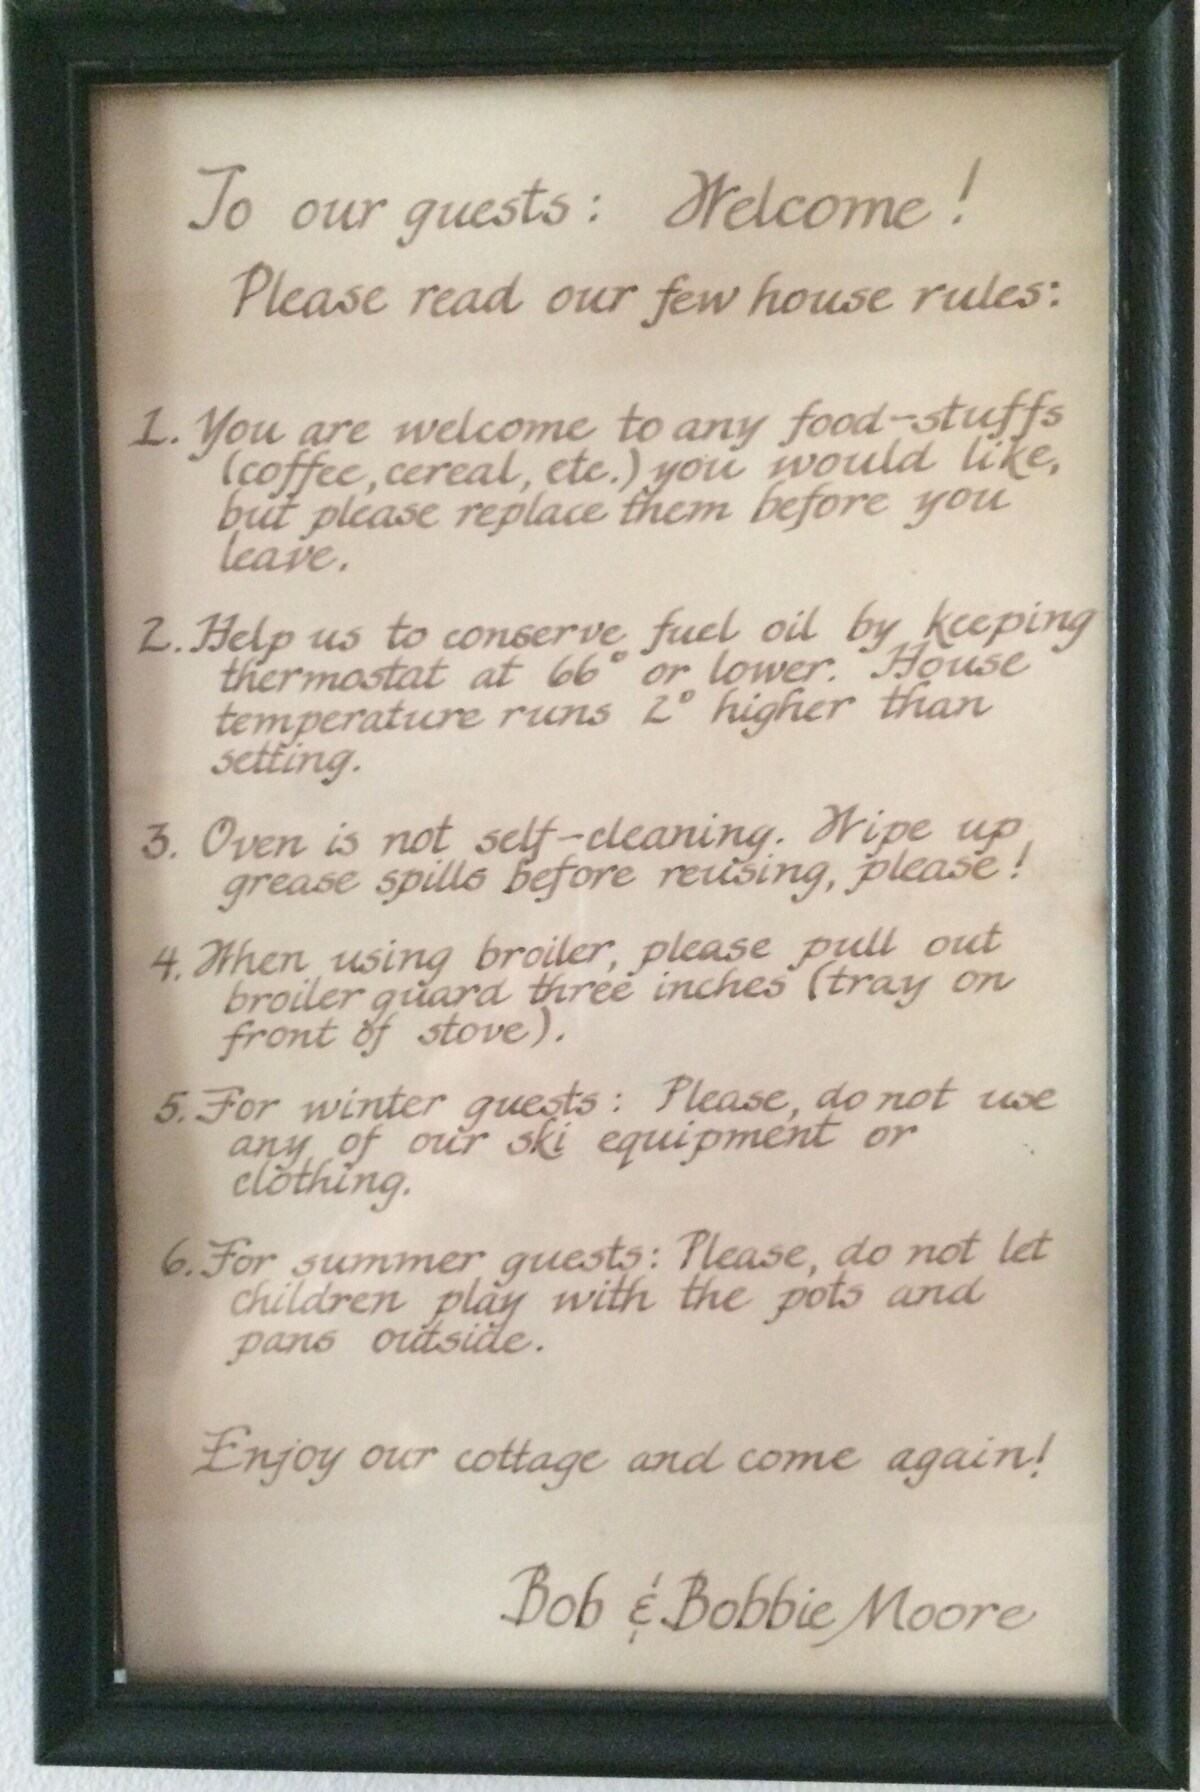 To our guests: Welcome!
Please read our few house rules:
1. You are welcome to any food-stuffs
(coffee, cereal, etc.) you would like,
but please replace them before you
leave.
2. Help us to conserve fuel oil by keeping
thermostat at 66° or lower. House
temperature runs 2° higher than
setting.
3. Oven is not self-cleaning. Wipe up
grease spills before reusing, please!
4. When using broiler, please pull out
broiler guard three inches (tray on
front of stove).
5. For winter guests: Please, do not use
any of our ski equipment or
clothing.
6. For summer guests: Please, do not let
children play with the pots and
pans outside.
Enjoy our cottage and come again!
Bob & Bobbie Moore